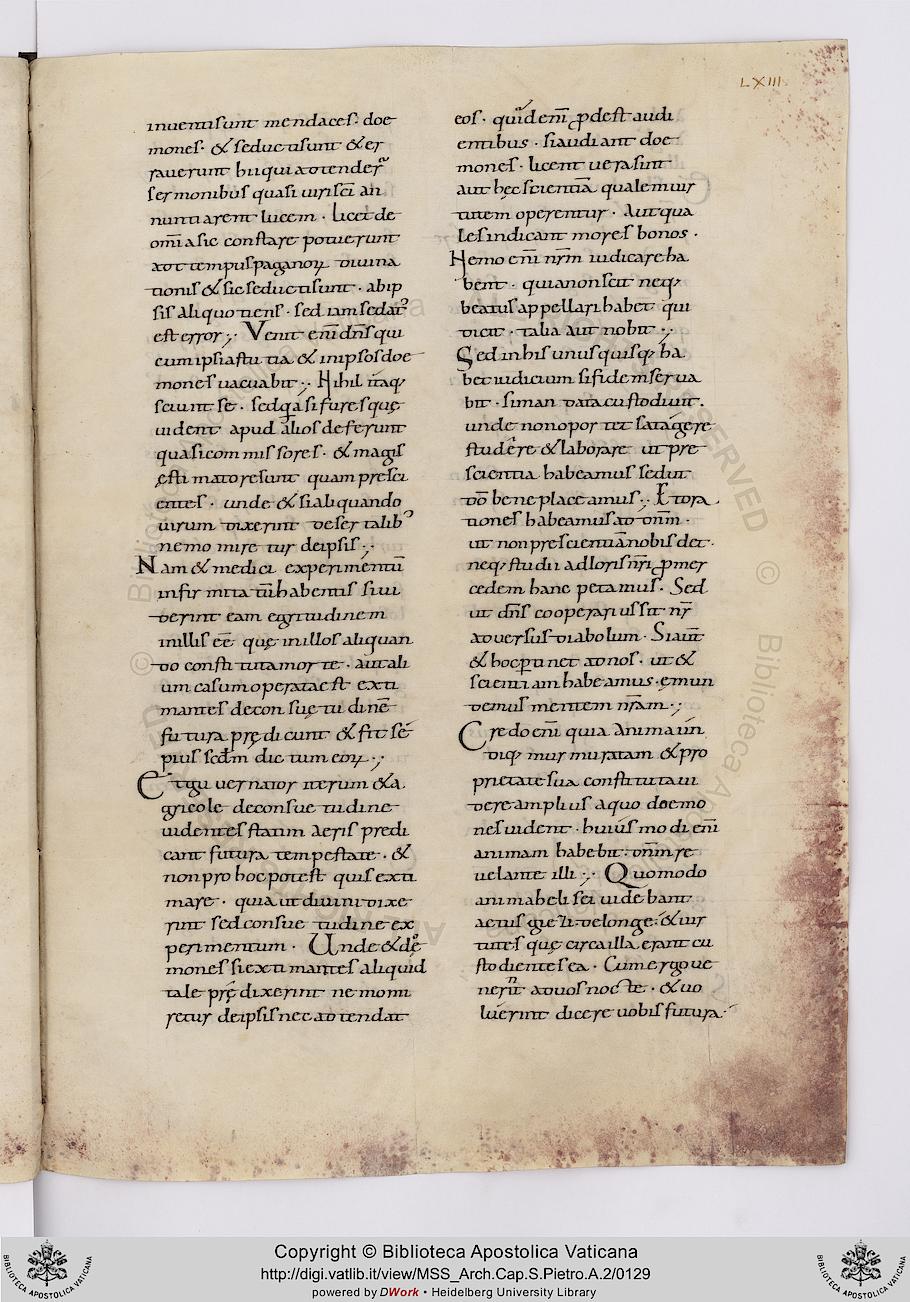 LXIII
inuenti sunt mendaces. doe
mones. & seducti sunt & er
rauerunt hii qui adtender̄
sermonibus quasi uiri sc̄i an
nuntiarent lucem. licet de
om̄ia sic constare potuerunt
adt tempus paganoꝝ diuina
tionis & sic seducti sunt. ab ip
sis aliquotiens. sed iam sedat᾽
est error; Venit eni᷅ dn̄s qui
cum ipsi astutia & in ipsos doe
mones uacuabit; Nihil itaq;
sciunt se. sed q̄a si fures quę
uident apud alios deferunt
quasi commissores. & magis
ęstimatores sunt quam presci
entes. unde & si aliquando
uirum dixerint de ser talib᾽
nemo miretur de ipsis;
Nam & medici experimentū
infirmita tū habentis siui
derint eam egritudinem
in illis eē quę in illos aliquan
do constituta morte. aut ali
um casum operata est exti
mantes de consuętudinē
futura prędicunt & fit sę
pius sed̄m dictum eoꝝ;
Et guuernator iterum & a
gricole de consuetudine
uidentes statim aeris predi
cant futura tempestate. &
non pro hoc potest quis exti
mare. quia ut diuini dixe
rint sed consuetudine ex
perimentum. Unde & dę
mones si extimantes aliquid
tale prędixerint nemo mi
retur de ipsis nec adtendat
eos. quid enī ꝓdest audi
entibus. si audiant doe
mones. licent uera sint
aut hec scientiā qualem uir
tutem operentur. Aut qua
les indicant mores bonos.
Nemo enī nr̄m iudicare ha
bent. quia non scit neq;
beatus appellari habet qui
dicit. talia aut nobit;
Sed in his unusquisq; ha
bet iudicium si fidem serua
bit. si mandata custodiuit.
unde non oportet satagere
studēre & laborare ut pre
scientia habeamus sed ut
dō bene placeamus; Et ora
tiones habeamus ad dn̄m.
ut non prescientiā nobis det.
neq; studii ad loris nr̄i ꝓ mer
cedem hanc petamus. Sed
ut dn̄s cooperari ussit nr̄
aduersus diabolum. Si aut̄
& hoc pertinet ad nos. ut &
scientiam habeamus. ęmun
demus mentem nr̄am;
Credo enī quia anima un
diq; mur muratam & pro
prietate sua constituta ui
dere amplius a quo doemo
nes uident. huiusmodi enī
animam habebit. dn̄m re
uelante illi; Quomodo
anima beli sei uidebant
actus gie᷅zi de longe. & uir
tutes quę circa illa erant cu
stodientes ea. Cum ergo ue
nerīt ad uos nocte. & uo
luerint dicere uobis futura.
Copyright © Biblioteca Apostolica Vaticana
http://digi.vatlib.it/view/MSS_Arch.Cap.S.Pietro.A.2/0129
powered by DWork • Heidelberg University Library